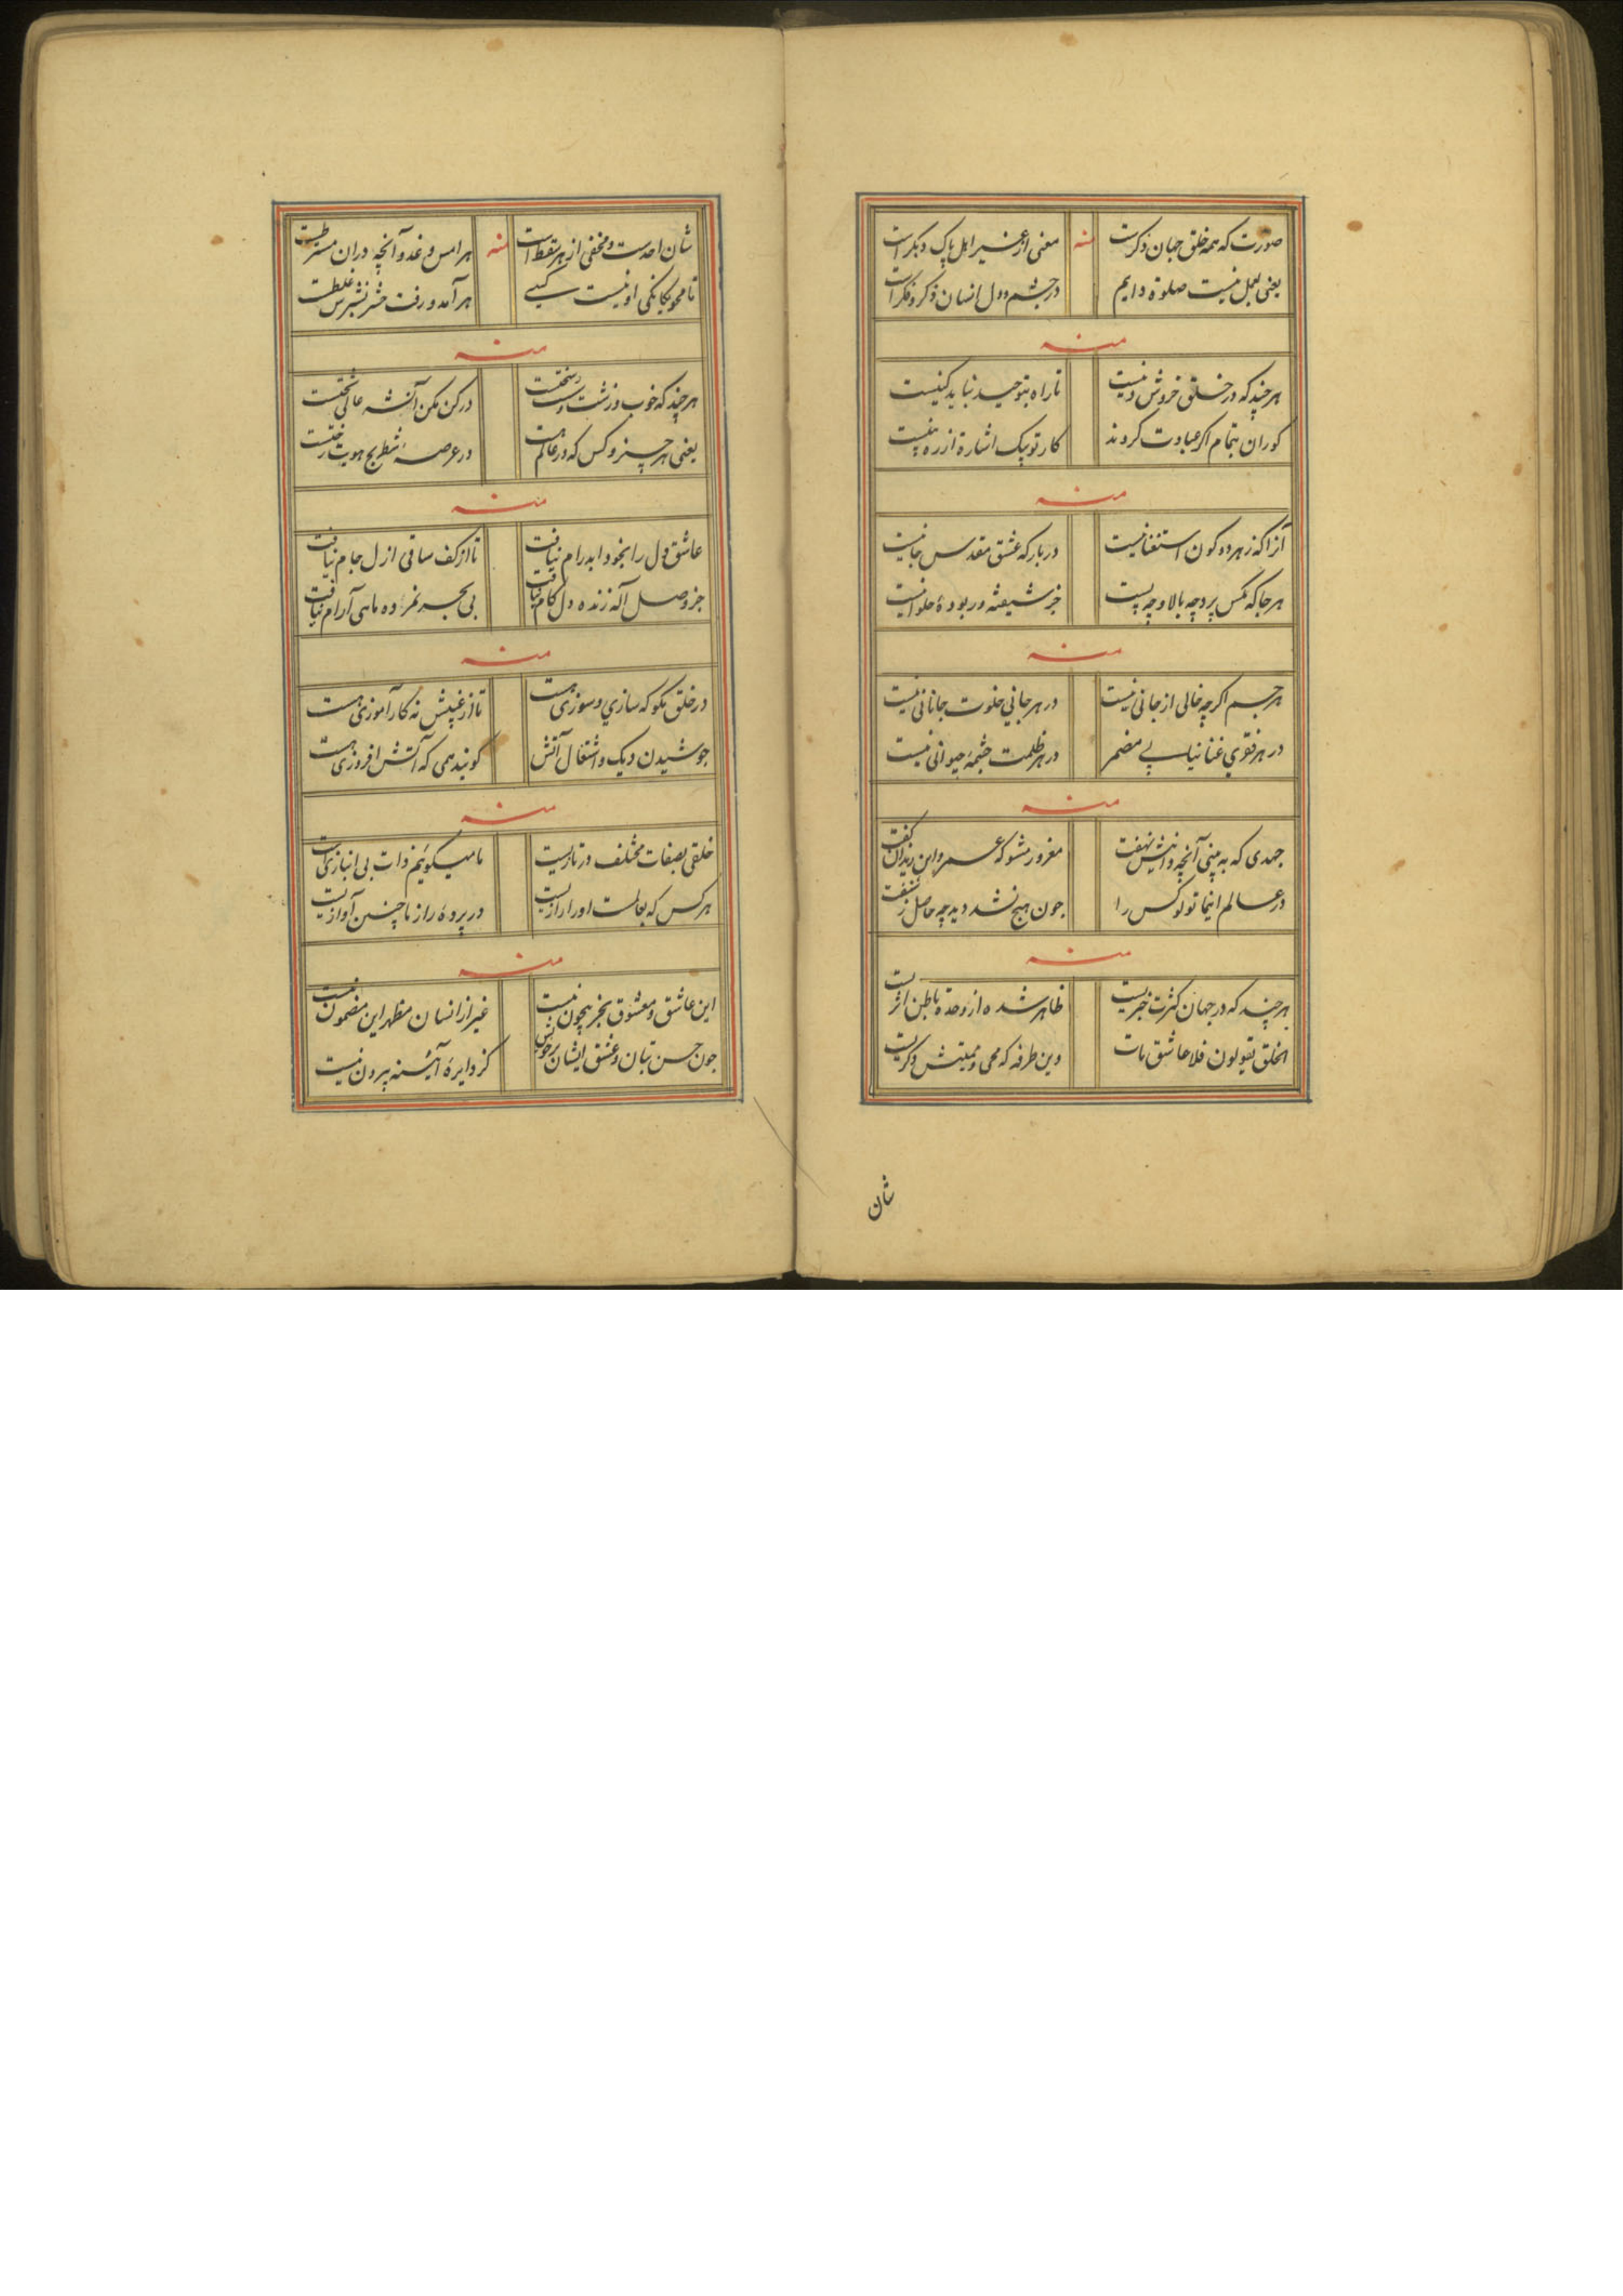 صورت که همه خلق جهان ذکرست منه معنی از غیر اهل پاک و بکر است
یعنی بعمل نیست صلوة دایم در جسم و دل انسان ذکر و فکر است
منه
هر چند که در خلق خروش دنیست تا راه بتوحید نباید کنیست
کوران بتمام اگر عبادت کردند کار تو بیک اشارة از ره
منه
آنرا که ز هر دو کون استغنا نیست در بارکه عشق مقدس جا نیست
هر جا که مکس پرد چه بالا و چه پست جز شیفته و ربودهٔ حلوا نیست
منه
هر جسم اکرچه خالی از جانی نیست در هر جانی خلوت جانانی نیست
در هر فقری غنا نیابی مضمر در هر ظلمت چشمهٔ حیوانی نیست
منه
جهدی که به بینی آنچه دانش نهفت مغرور مشو که عمرو این زید آن گفت
در عالم اینما تولوا کس را چون هیچ نشد دید چه حاصل ز شنفت
منه
هر چند که در جهان کثرت خبریست ظاهر شده از وحدة باطن اثریست
الخلق یقولون فلا عاشق مات وین طرفه که محیی و ممیتش دکریست
شان
شان احدست و مخفی از هر سقط است منه هر امس و غد و آنچه در ان مستر
تا محو یکانکی او نیست کسی هر آمد و رفت حشر نشرس غلطست
منه
هر چند که خوب و زشت و در کن مکن آن شه عالی بختست
یعنی هر چیز و کس که در عالم هست در عرصهٔ شطرنج هویت رختست
منه
عاشق دل را بخود ابد رام نیافت تا از کف ساقی ازل جام نیافت
جز وصل اله زنده دل کام نیافت بی بحر نمرده ماهی آرام نیافت
منه
در خلق مکو که سازی و سوزی هست تا از غیبش نه کار آموزی هست
جوشیدن دیک و اشتغال آتش کویند همی که آتش افروزی هست
منه
خلقی بصفات مختلف در تازیست ما میکوئیم ذات بی انبازی است
هر کس که بحالست او را رازیست در پردهٔ راز ما چنین آوازیست
منه
این عاشق و معشوق بجز بیچون نیست غیر از انسان مظهر این مضمون نیست
چون حسن بتان و عشق ایشان بر خویش کز دایرهٔ آینه بیرون نیست